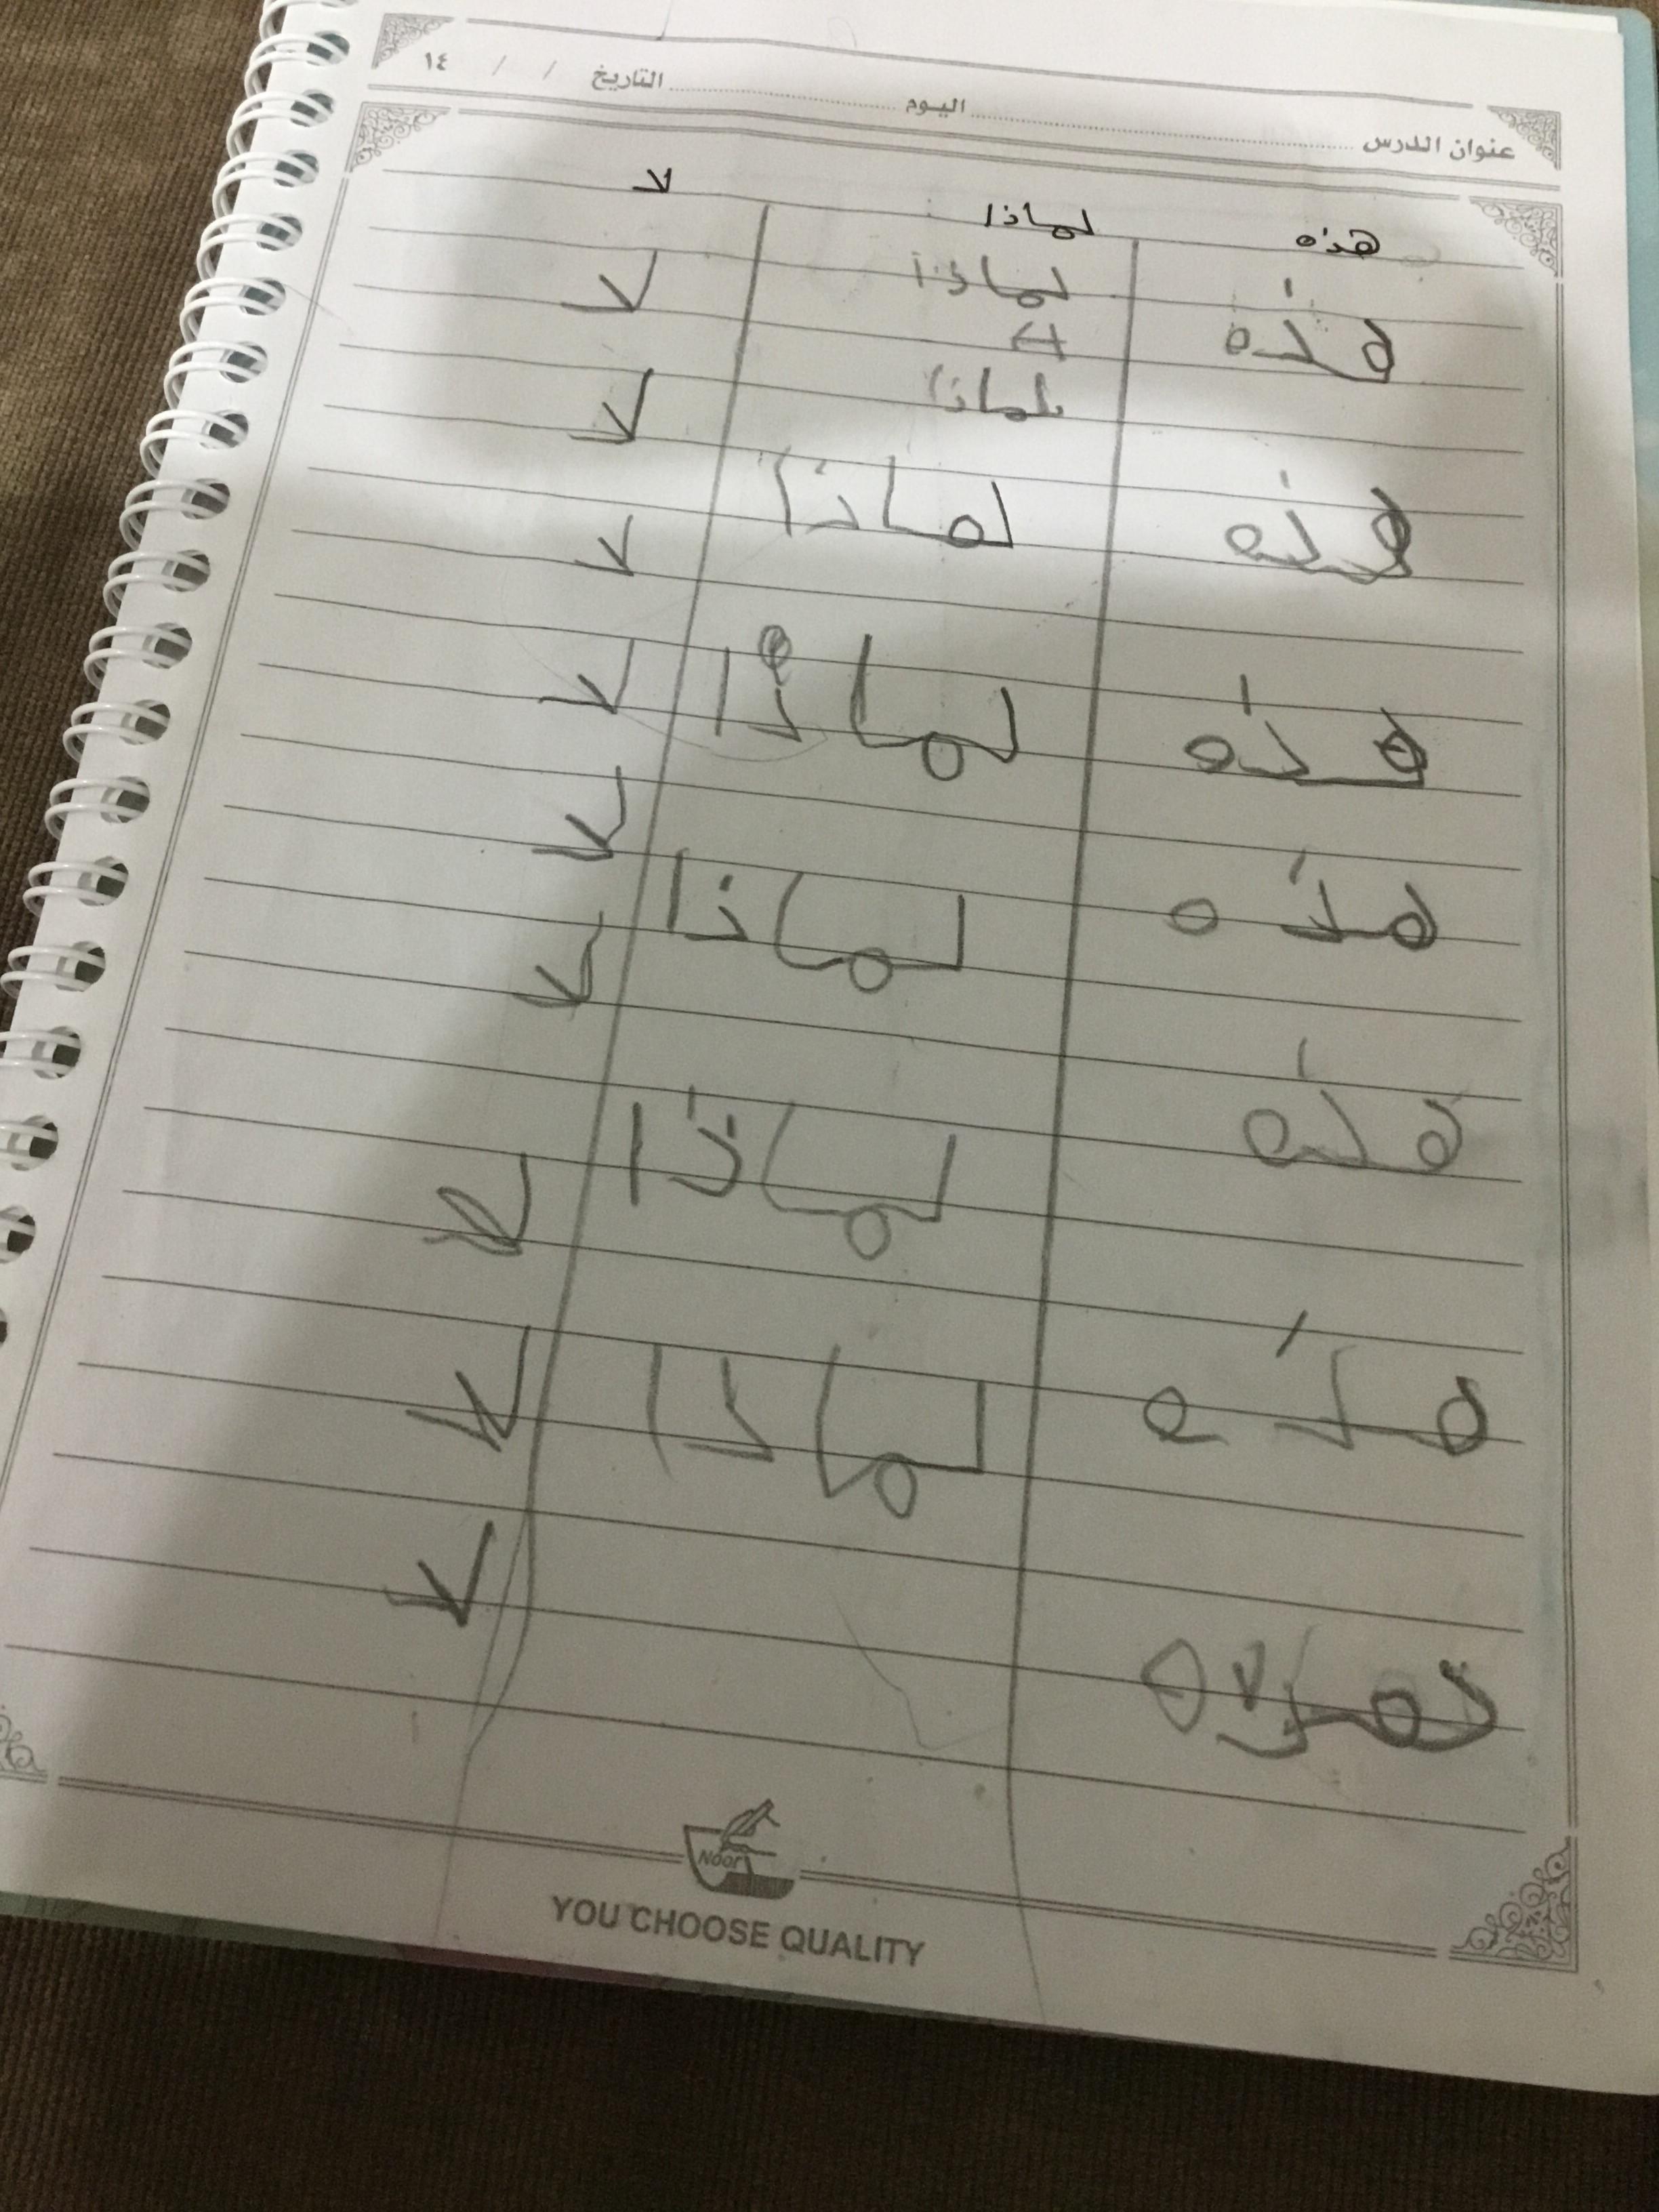 عنوان الدرس اليوم التاريخ / / ١٤
هذه لماذا لا
هذه لماذا لا
لماذا لا
هذه لماذا لا
هذه لماذا لا
هذه لماذا لا
لا
هذه لماذا لا
هذه لماذا لا
لا
Noor
YOU CHOOSE QUALITY